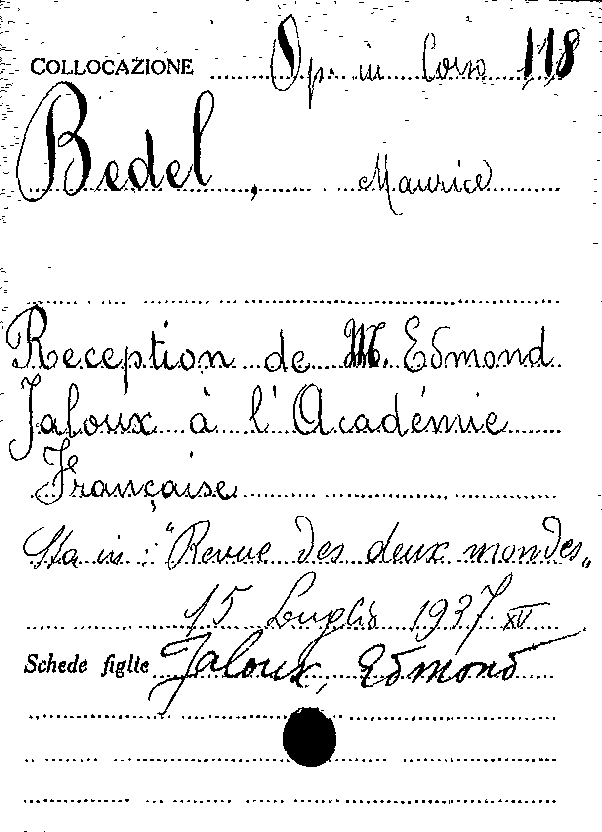 COLLOCAZIONE Op. in Corso 118
Bedel, Maurice
Reception de M. Edmond
Jaloux à l'Académie
Française
Sta in: "Revue des deux mondes"
15 Luglio 1937. XV
Schede figlie Jaloux, Edmond